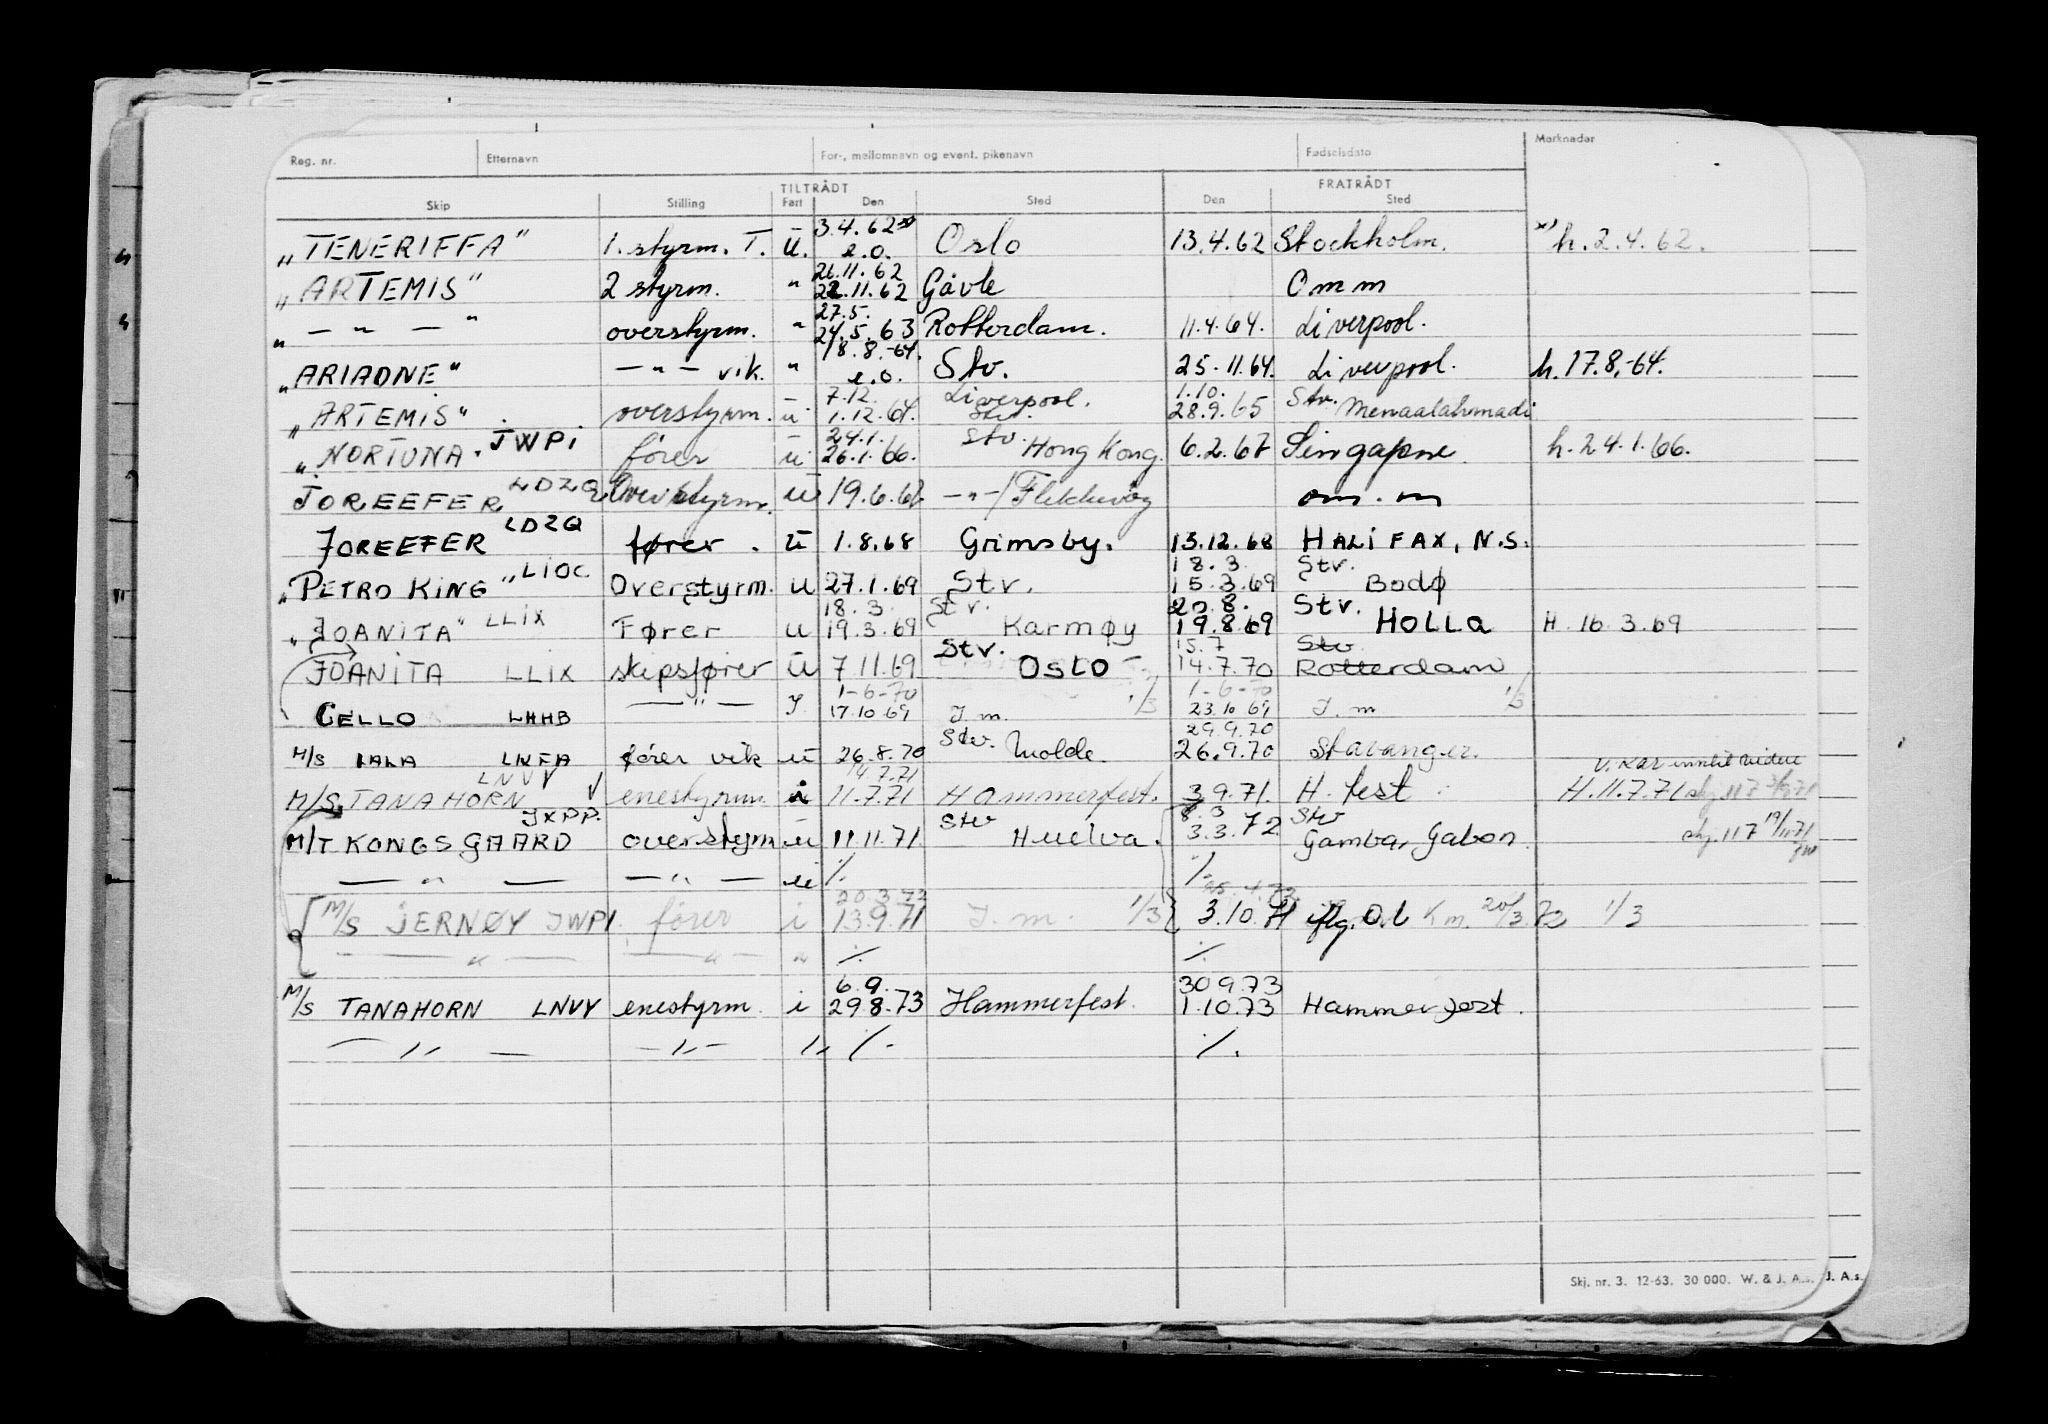 Reg. nr. Etternavn For-, mellomnavn og event. pikenavn Fødselsdato Merknader
TILTRÅDT FRATRÅDT
Skip Stilling Fart Den Sted Den Sted
3.4.62 x)
„TENERIFFA" 1. styrm. T. u. e.o. Oslo 13.4.62 Stockholm. x) h. 2.4.62.
26.11.62
„ARTEMIS" 2 styrm. " 22.11.62 Gävle Omm
27.5.
„ — " — " overstyrm. " 24.5.63 Rotterdam. 11.4.64. Liverpool.
18.8.-64.
„ARIADNE" — " — vik. " e.o. Stv. 25.11.64. Liverpool. h. 17.8.-64.
7.12. Liverpool. 1.10. Stv.
„ARTEMIS" overstyrm. u 1.12.64. Stv. 28.9.65 Menaalahmadi
24.1. Stv.
„NORTUNA" JWPi fører u 26.1.66. Hong Kong. 6.2.67 Singapore h. 24.1.66.
JOREEFER LDZQ Overstyrm. u 19.6.68 — " — / Flekkevåg om. m
JOREEFER LDZQ fører . u 1.8.68 Grimsby. 13.12.68 HALIFAX, N.S.
18.3. Stv.
„PETRO KING" LIOC Overstyrm. u 27.1.69 Stv. 15.3.69 Bodø
18.3. Stv. 20.8. Stv.
„JOANITA" LLIX Fører u 19.3.69 Karmøy 19.8.69 HOLLA H. 16.3.69
Stv. 15.7 Stv
JOANITA LLIX skipsfører u 7.11.69 OSLO 14.7.70 Rotterdam
1-6-70 1/3 1-6-70 1/3
CELLO LHHB — " — I 17.10.69 I. m. 23.10.69 I. m
Stv. 29.9.70
M/S LALA LNFA fører vik u 26.8.70 Molde. 26.9.70 Stavanger.
LNVY 14.7.71 v. kar inntil videre
M/S TANAHORN enestyrm. i 11.7.71 Hammerfest. 3.9.71. H. fest H. 11.7.71
JXPP. Stv 8.3 Stv
M/T KONGSGAARD overstyrm u 11.11.71 Huelva. 3.3.72 Gamba, Gabon. skj. 117 19/11-71
— " — — " — u ./. ./.
20.3.72
M/S JERNØY JWPI. fører i 13.9.71 I. m. 1/3 3.10.71 iflg. O.l Km. 20/3.72 1/3
— " — — " — " ./. ./.
6.9. 30.9.73
M/S TANAHORN LNVY enestyrm. i 29.8.73 Hammerfest. 1.10.73 Hammerfest.
— " — — " — " ./. ./.
Skj. nr. 3. 12-63. 30 000. W. & J. A.s. J. A.s.